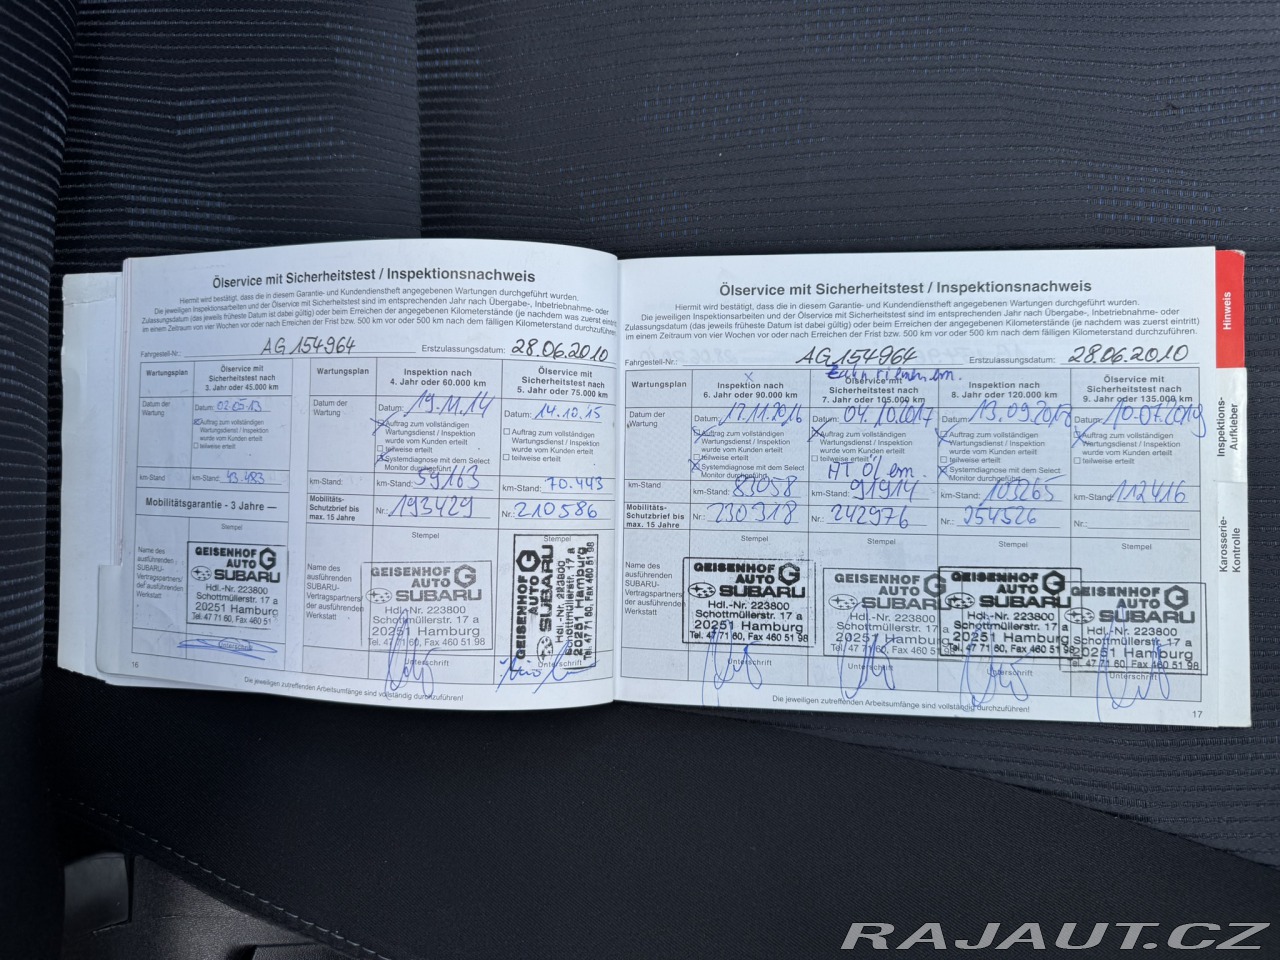 Ölservice mit Sicherheitstest / Inspektionsnachweis
Hiermit wird bestätigt, dass die in diesem Garantie- und Kundendienstheft angegebenen Wartungen durchgeführt wurden.
Die jeweiligen Inspektionsarbeiten und der Ölservice mit Sicherheitstest sind im entsprechenden Jahr nach Übergabe-, Inbetriebnahme- oder
Zulassungsdatum (das jeweils früheste Datum ist dabei gültig) oder beim Erreichen der angegebenen Kilometerstände (je nachdem was zuerst eintritt)
in einem Zeitraum von vier Wochen vor oder nach Erreichen der Frist bzw. 500 km vor oder 500 km nach dem fälligen Kilometerstand durchzuführen.
Fahrgestell-Nr.: AG154964 Erstzulassungsdatum: 28.06.2010
Wartungsplan
Ölservice mit
Sicherheitstest nach
3. Jahr oder 45.000 km
Datum der
Wartung
Datum: 02.05.13
Auftrag zum vollständigen
Wartungsdienst / Inspektion
wurde vom Kunden erteilt
teilweise erteilt
km-Stand
km-Stand: 43.483
Mobilitätsgarantie - 3 Jahre
Stempel
Name des
ausführenden
SUBARU-
Vertragspartners/
der ausführenden
Werkstatt
GEISENHOF
AUTO
SUBARU
Hdl.-Nr. 223800
Schottmüllerstr. 17 a
20251 Hamburg
Tel. 47 71 60, Fax 460 51
Unterschrift
16
Wartungsplan
Inspektion nach
4. Jahr oder 60.000 km
Datum der
Wartung
Datum: 19.11.14
Auftrag zum vollständigen
Wartungsdienst / Inspektion
wurde vom Kunden erteilt
teilweise erteilt
Systemdiagnose mit dem Select
Monitor durchgeführt
km-Stand
km-Stand: 59163
Mobilitäts-
Schutzbrief bis
max. 15 Jahre
Nr.: 193429
Stempel
Name des
ausführenden
SUBARU-
Vertragspartners/
der ausführenden
Werkstatt
GEISENHOF
AUTO
SUBARU
Hdl.-Nr. 223800
Schottmüllerstr. 17 a
20251 Hamburg
Tel. 47 71 60, Fax 460 51 98
Unterschrift
Ölservice mit
Sicherheitstest nach
5. Jahr oder 75.000 km
Datum: 14.10.15
Auftrag zum vollständigen
Wartungsdienst / Inspektion
wurde vom Kunden erteilt
teilweise erteilt
km-Stand: 70.443
Nr.: 210586
Stempel
GEISENHOF
AUTO
SUBARU
Hdl.-Nr. 223800
Schottmüllerstr. 17 a
20251 Hamburg
Tel. 47 71 60, Fax 460 51 98
Unterschrift
Die jeweiligen zutreffenden Arbeitsumfänge sind vollständig durchzuführen!
Ölservice mit Sicherheitstest / Inspektionsnachweis
Hiermit wird bestätigt, dass die in diesem Garantie- und Kundendienstheft angegebenen Wartungen durchgeführt wurden.
Die jeweiligen Inspektionsarbeiten und der Ölservice mit Sicherheitstest sind im entsprechenden Jahr nach Übergabe-, Inbetriebnahme- oder
Zulassungsdatum (das jeweils früheste Datum ist dabei gültig) oder beim Erreichen der angegebenen Kilometerstände (je nachdem was zuerst eintritt)
in einem Zeitraum von vier Wochen vor oder nach Erreichen der Frist bzw. 500 km vor oder 500 km nach dem fälligen Kilometerstand durchzuführen.
Fahrgestell-Nr.: AG154964 Erstzulassungsdatum: 28.06.2010
Wartungsplan
Inspektion nach
6. Jahr oder 90.000 km
Datum der
Wartung
Datum: 17.11.2016
Auftrag zum vollständigen
Wartungsdienst / Inspektion
wurde vom Kunden erteilt
teilweise erteilt
Systemdiagnose mit dem Select
Monitor durchgeführt
km-Stand
km-Stand: 83058
Mobilitäts-
Schutzbrief bis
max. 15 Jahre
Nr.: 230318
Stempel
Name des
ausführenden
SUBARU-
Vertragspartners/
der ausführenden
Werkstatt
GEISENHOF
AUTO
SUBARU
Hdl.-Nr. 223800
Schottmüllerstr. 17 a
20251 Hamburg
Tel. 47 71 60, Fax 460 51 98
Unterschrift
Zahnriemen ern.
Ölservice mit
Sicherheitstest nach
7. Jahr oder 105.000 km
04.10.2017
Auftrag zum vollständigen
Wartungsdienst / Inspektion
wurde vom Kunden erteilt
teilweise erteilt
HT Öl ern.
km-Stand: 91914
Nr.: 242976
Stempel
GEISENHOF
AUTO
SUBARU
Hdl.-Nr. 223800
Schottmüllerstr. 17 a
20251 Hamburg
Tel. 47 71 60, Fax 460 51 98
Unterschrift
Inspektion nach
8. Jahr oder 120.000 km
Datum: 13.09.2018
Auftrag zum vollständigen
Wartungsdienst / Inspektion
wurde vom Kunden erteilt
teilweise erteilt
Systemdiagnose mit dem Select
Monitor durchgeführt
km-Stand: 103265
Nr.: 254526
Stempel
GEISENHOF
AUTO
SUBARU
Hdl.-Nr. 223800
Schottmüllerstr. 17 a
20251 Hamburg
Tel. 47 71 60, Fax 460 51 98
Unterschrift
Ölservice mit
Sicherheitstest nach
9. Jahr oder 135.000 km
Datum: 10.07.2019
Auftrag zum vollständigen
Wartungsdienst / Inspektion
wurde vom Kunden erteilt
teilweise erteilt
km-Stand: 112416
Nr.:
Stempel
GEISENHOF
AUTO
SUBARU
Hdl.-Nr. 223800
Schottmüllerstr. 17 a
20251 Hamburg
Tel. 47 71 60, Fax 460 51 98
Unterschrift
Die jeweiligen zutreffenden Arbeitsumfänge sind vollständig durchzuführen!
17
Hinweis
Inspektions-
Aufkleber
Karosserie-
Kontrolle
RAJAUT.CZ